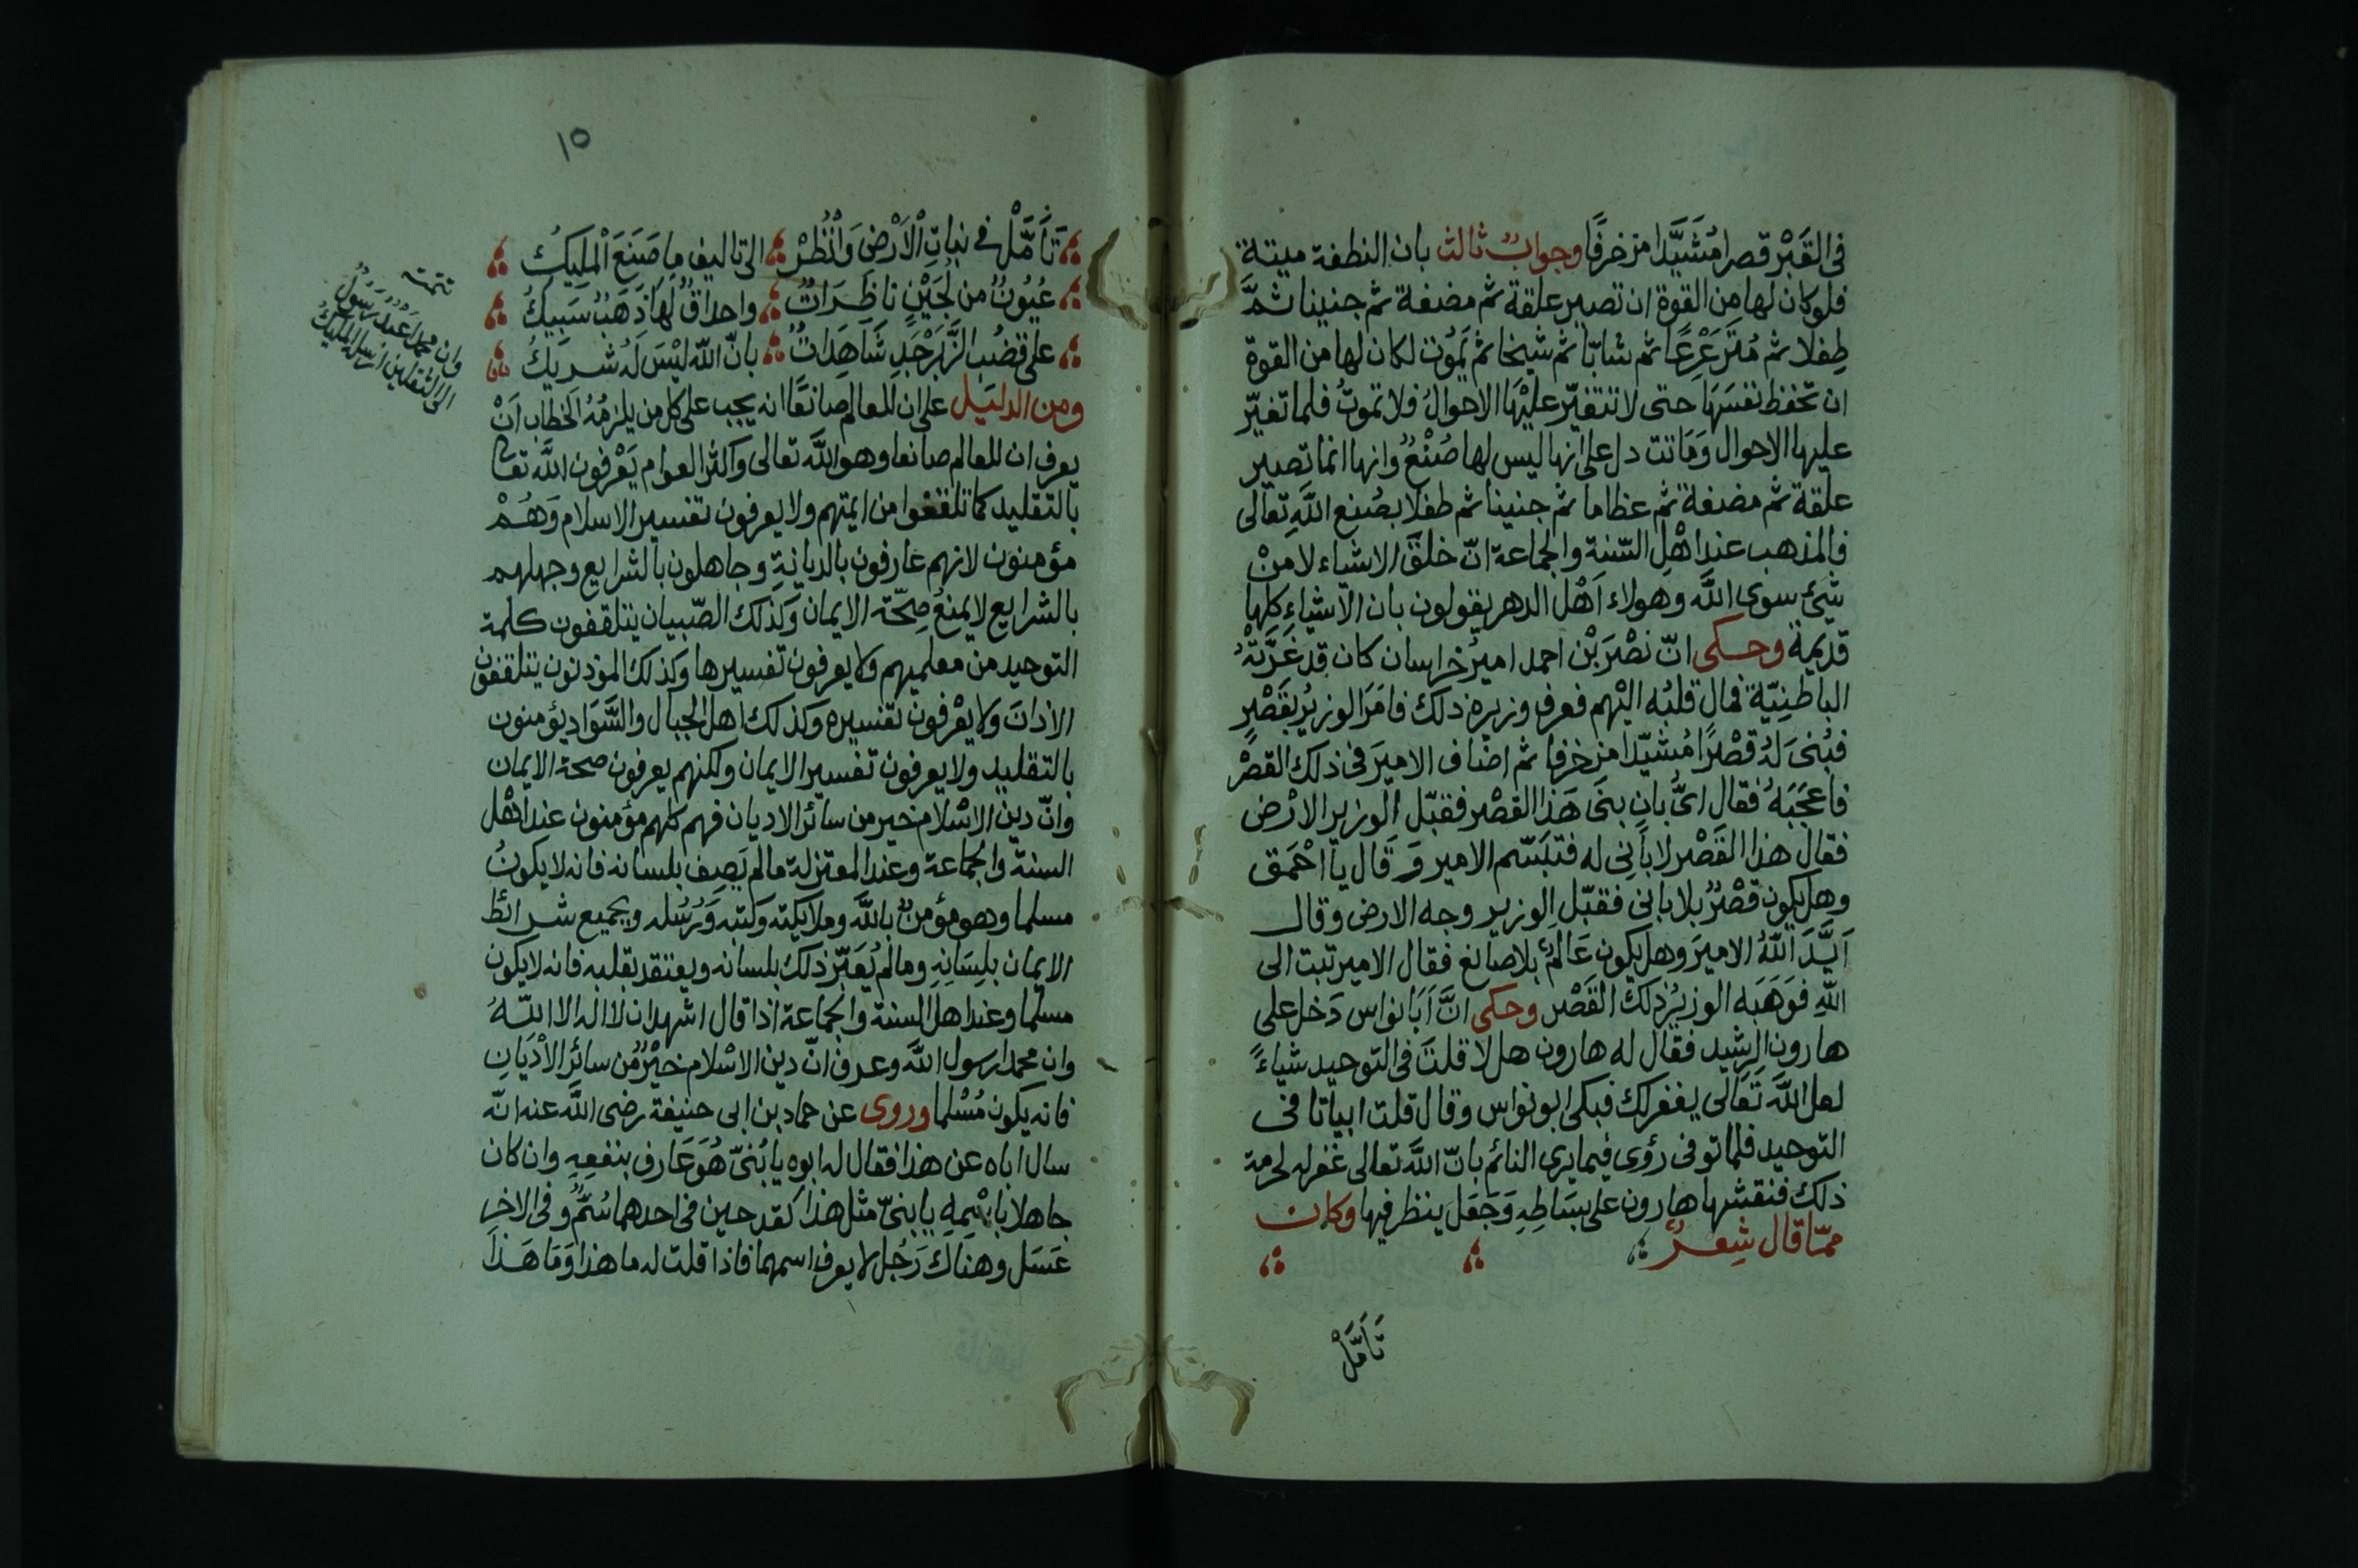 فى القَبْر قصرا مُشَيَّدا مزخرفًا وجوابٌ ثالث بان النطفة ميتة
فلو كان لها من القوة ان تصير علقة ثم مضغة ثم جنينا ثمَّ
طِفلا ثم مُتَرَعْرِعًا ثم شابّا ثم شيخا ثم يَمُوت لكان لها من القوة
ان تحفظ نفسَهَا حتى لا تتغيّر عليْهَا الاحوالُ فلا تموتُ فلما تغيّر
عليها الاحوال وَمَاتت دل على انها ليس لها صُنْعٌ وانها انما تصير
علقة ثم مضغة ثم عظاما ثم جنينا ثم طفلا بصُنع اللَّهِ تعالى
فالمذهب عند اهْلِ السّنة والجماعة انّ خلقَ الاشياء لا منْ
شَئ سوى اللَّه وهولاء اَهْل الدهر يقولون بان الاشياءِ كلها
قديمة وحكى انّ نصْرَ بْن احمد اميرُ خراسان كان قد غَرَّتْهُ
الباطنِيّة فمال قلبُه اليْهم فعرف وزيره ذلك فامَرَ الوزيرُ بقَصْرٍ
فبُنىَ لهُ قصْرًا مُشيّدا مزخرفا ثم اضاف الاميرَ فى ذلك القصْر
فاعجَبَهُ فقال اىُّ بانٍ بنَى هَذا القصْر فقبّل الوزير الارْض
فقال هذا القَصْر لا بأَنِى له فتبَسّم الامير وَ قال يا احْمَق
وهل يكون قصْرٌ بلا بانى فقبّل الوزير وجه الارض وقال
اَيَّدَ اللّهُ الاميرَ وهل يكون عَالمٌ بلا صانع فقال الامير تبت الى
اللّهِ فوَهَبَه الوزيرُ ذلك القَصْر وحكى انَّ اَبَا نواس دَخل على
هارون الرشيد فقال له هارون هل لا قلتَ فى التوحيد شياءً
لعل اللَّهَ تَعَالى يغفر لك فبكى ابو نواس وقال قلت ابياتا فى
التوحيد فلما توفى رؤى فيما يرى النائم بانّ اللَّه تعالى غفر له لحرمة
ذلك فنقشها هارون على بسَاطِهِ وَجَعَلَ ينظر فيها وكان
ممّا قال شِعرٌ
تَأَمَّلْ
١٥
تَأَمَّلْ فى نباتِ الْاَرْضِ وَانْظُرْ الى تاليف ما صَنَعَ الْمَلِيكُ
عُيُونٌ من لُجَيْنٍ ناظِرَاتٌ واحداقٌ لهَا ذهَبٌ سَبِيكُ
على قضُبِ الزَّبَرْجَدِ شَاهِدَاتٌ بانّ اللّه ليْسَ لهُ شريكُ
ومن الدليل على ان للعالم صانعًا انه يجب على كل من يلزمُهُ الخطاب اَنْ
يعرف ان للعالم صانعا وهو اللَّه تعالى واكثر العوام يَعْرفون اللَّه تعا
بالتقليد كما تلقفوا من ايمتهم ولا يعرفون تفسير الاسلام وَهُمْ
مؤمنون لانهم عارفون بالديانةِ وجاهلون بالشرايع وجهلهم
بالشرايع لا يمنعُ صِحّة الايمان وَكذلك الصّبيان يتلقفون كلمة
التوحيد من معلميهم ولا يعرفون تفسيرها وَكذلك الموذنون يتلقفون
الاذانَ ولا يعْرفون تفسيره وَكذلك اهل الجبال والسَّوَاد يؤمنون
بالتقليد ولا يعرفون تفسير الايمان ولكنهم يعرفون صحة الايمان
وانّ دين الاسْلام خير من سائر الاديان فهم كلهم مؤمنون عند اهْل
السنة والجماعة وعند المعتزلة مالم يَصِف بلسانه فانه لا يكونُ
مسلما وهو مؤمنٌ باللَّه وملايكته وكتبه وَرُسُله وبجميع شرائط
الايمان بلِسَانِهِ ومالم يُعَبّر ذلك بلسانه ويعتقد بقلبه فانه لا يكون
مسلما وعند اهل السنة والجماعة اذا قال اشهد ان لا اله الا اللّهُ
وان محمدا رسول اللَّه وعرف انّ دين الاسْلام خيْرٌ من سائر الاْدْيَانِ
فانه يكون مُسْلما وروى عن حماد بن ابى حنيفة رضى اللَّه عنه انّه
سال اباه عن هذا فقال له ابوه يا بُنىّ هُوَ عَارف بنفعِهِ وان كان
جاهلا باسْمِهِ يا بنىّ مثل هذا كقدحين فى احدهما سُمٌّ وفى الاخرِ
عَسَل وهنَاك رَجُل لا يعرف اسمهما فاذا قلت له ما هذا وَمَا هَذا
تتمته
وان محمدا عَبدٌ رَسُولٌ
الى الثقلين ارسله المليكُ